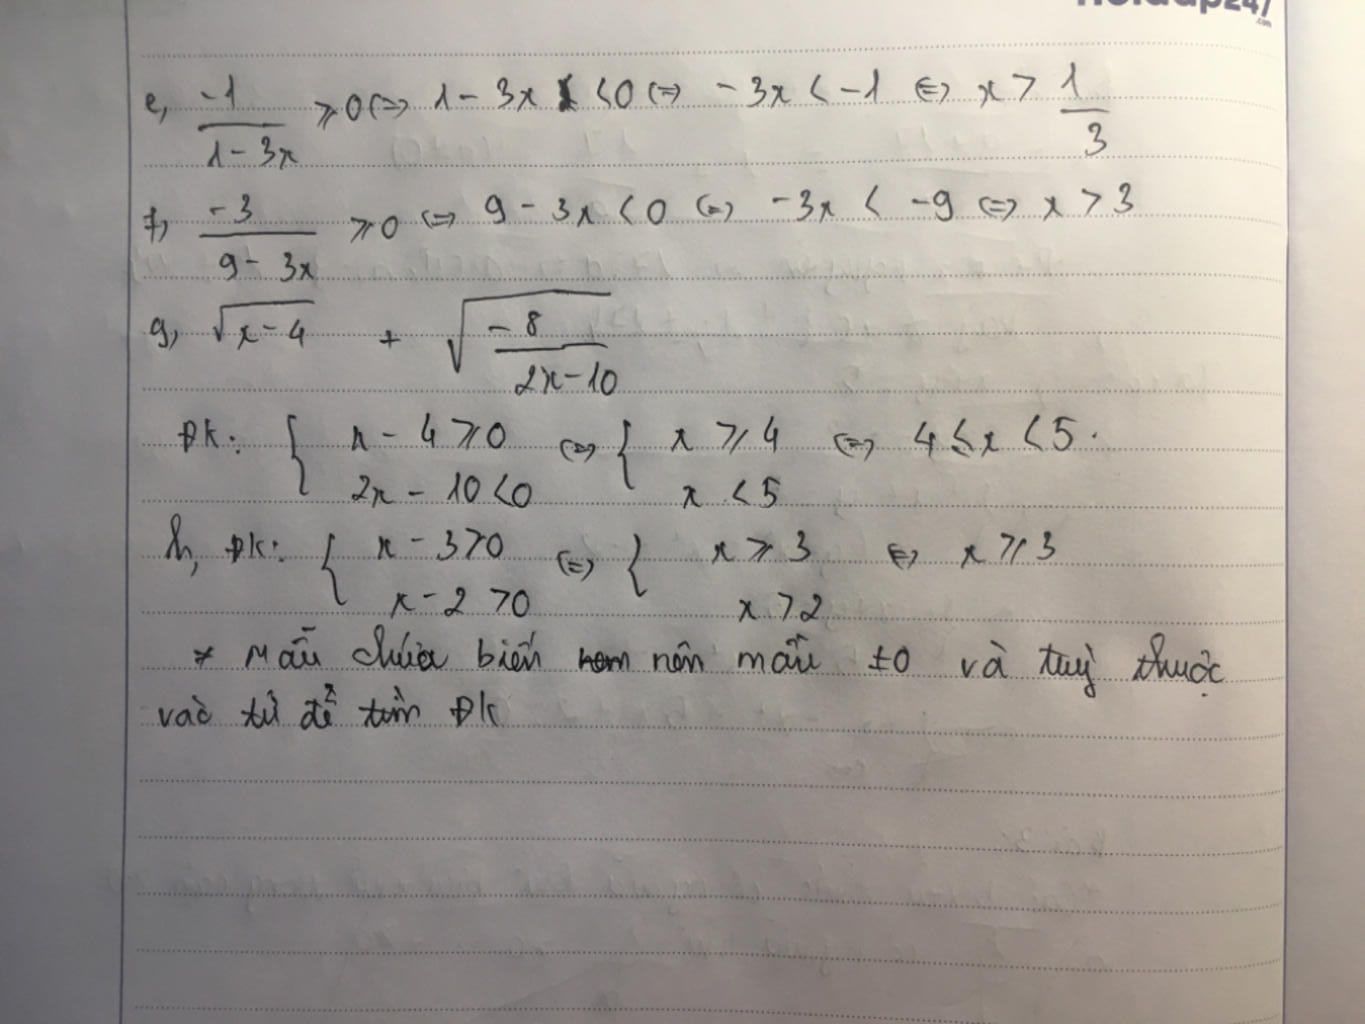 e, -1/(1-3x) ≥ 0 (=) 1 - 3x < 0 (=) -3x < -1 (=) x > 1/3
f, -3/(9-3x) ≥ 0 (=) 9 - 3x < 0 (=) -3x < -9 (=) x > 3
g, √(x-4) + √(-8/(2x-10))
ĐK: { x - 4 ≥ 0 (=) { x ≥ 4 (=) 4 ≤ x < 5.
2x - 10 < 0 x < 5
h, ĐK: { x - 3 > 0 (=) { x ≥ 3 (=) x ≥ 3
x - 2 > 0 x > 2
* Mẫu chứa biến nên mẫu ≠0 và tuỳ thuộc
vào tử để tìm ĐK